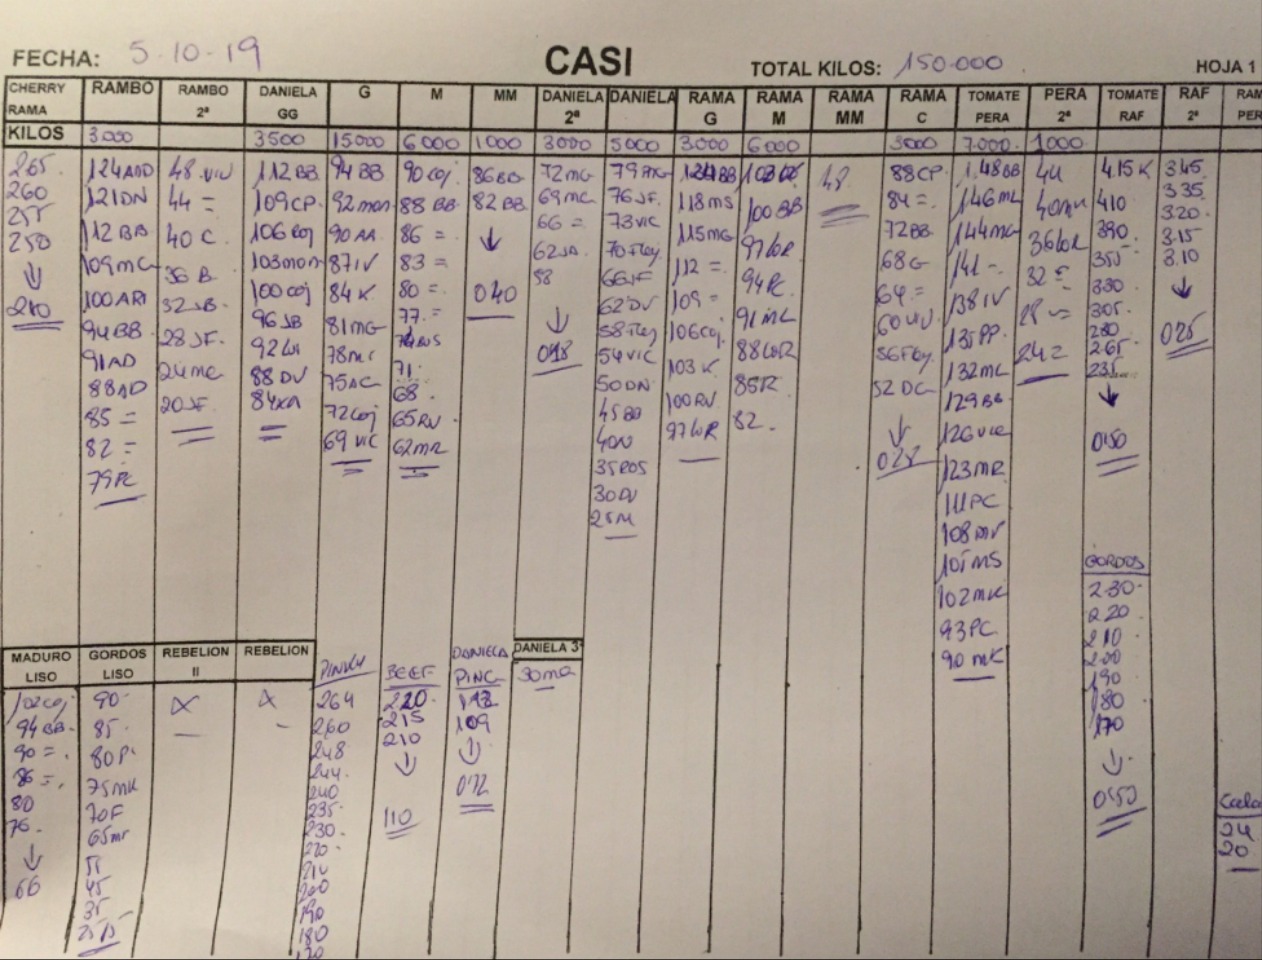 FECHA: 5-10-19 CASI TOTAL KILOS: 150.000 HOJA 1
CHERRY RAMA
RAMBO
RAMBO 2ª
DANIELA GG
G
M
MM
DANIELA 2ª
DANIELA
RAMA G
RAMA M
RAMA MM
RAMA C
TOMATE PERA
PERA 2ª
TOMATE RAF
RAF 2ª
KILOS 3.000 3500 15000 6000 1000 3000 5000 3.000 6.000 3000 7.000 1000
265
260
255
250
↓
210
124 AND
121 DN
112 BB
109 MC
100 ARI
94 BB
91 AD
88 AD
85 =
82 =
79 PC
48
44 =
40 C.
36 B.
32 JB.
28 JF.
24 mc
20 JF
112 BB
109 CP
106 coj
103 mon
100 coj
96 JB
92
88 DV
84
94 BB
92 mon
90 AA
87 IV
84 K
81 MG
78
75 AC
72 coj
69 VIC
90 coj
88 BB
86 =
83 =
80 =
77 =
71
68
65 RV
62 MR
86 BB
82 BB
↓
040
72 MG
69 MC
66 =
62 JA
58
↓
79
76 JF
73 VIC
70
66 JF
62 DV
58
54 VIC
50 DN
45 BB
40 N
35 ROS
30 DV
25 M
BB
118 MS
115 MG
112 =
109 =
106 coj
103 K
100 RV
97
100 BB
97
94 PC
91 ML
88
85 R
82
48
88 CP
84 =
72 BB
68 G
64 =
60
56
52 DC
↓
1.48 BB
146 ML
144 MG
141 -
138 IV
135 PP
132 ML
129 BB
126 VIC
123 MR
111 PC
108 MV
105 MS
102 MK
93 PC
90 MK
44
40
36
32 =
28 =
24 =
4.15 K
410
390
355
330
305
280
265
235
↓
0'50
GORDOS
2.30
220
210
200
190
180
170
↓
0'50
3.45
3.35
3.20
3.15
3.10
↓
025
MADURO LISO
102 coj
94 BB
90 =
86 =
80
76
↓
66
GORDOS LISO
90
85
80 P
75 MK
70 F
65 mr
55
45
35
REBELION II
X
REBELION
X
PINK
264
260
248
244
240
235
230
220
210
200
190
180
170
BEEF
220
215
210
↓
110
DANIELA PINC
109
↓
DANIELA 3ª
30 MG
24
20